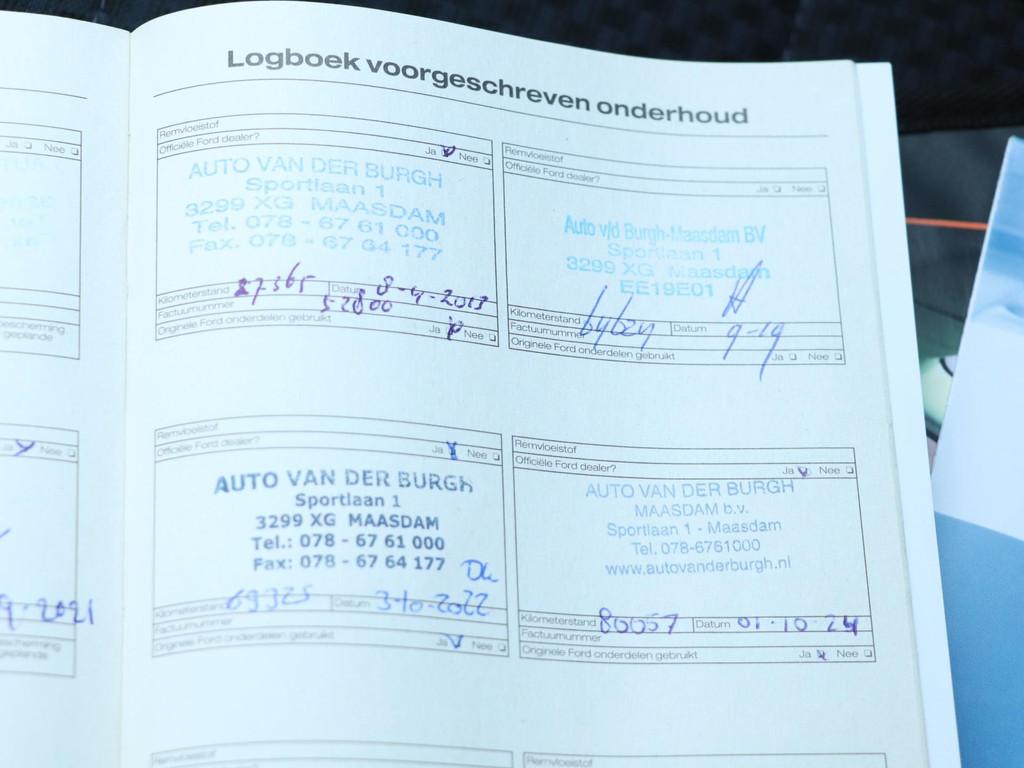 Logboek voorgeschreven onderhoud
Ja Nee
Remvloeistof
Officiële Ford dealer?
Ja Nee
AUTO VAN DER BURGH
Sportlaan 1
3299 XG MAASDAM
Tel. 078 - 67 61 000
Fax. 078 - 67 64 177
Kilometerstand 27365 Datum
Factuurnummer 52800
Originele Ford onderdelen gebruikt Ja Nee
Remvloeistof
Officiële Ford dealer?
Ja Nee
Auto v/d Burgh-Maasdam BV
Sportlaan 1
3299 XG Maasdam
EE19E01
Kilometerstand Datum 9-19
Factuurnummer
Originele Ford onderdelen gebruikt Ja Nee
bescherming
geplande
Ja Nee
9-2021
Remvloeistof
Officiële Ford dealer?
Ja Nee
AUTO VAN DER BURGH
Sportlaan 1
3299 XG MAASDAM
Tel.: 078 - 67 61 000
Fax: 078 - 67 64 177
Kilometerstand 69325 Datum 3-10-2022
Factuurnummer
Originele Ford onderdelen gebruikt Ja Nee
Remvloeistof
Officiële Ford dealer?
Ja Nee
AUTO VAN DER BURGH
MAASDAM b.v.
Sportlaan 1 - Maasdam
Tel. 078-6761000
www.autovanderburgh.nl
Kilometerstand 80057 Datum 01-10 24
Factuurnummer
Originele Ford onderdelen gebruikt Ja Nee
Remvloeistof
Remvloeistof